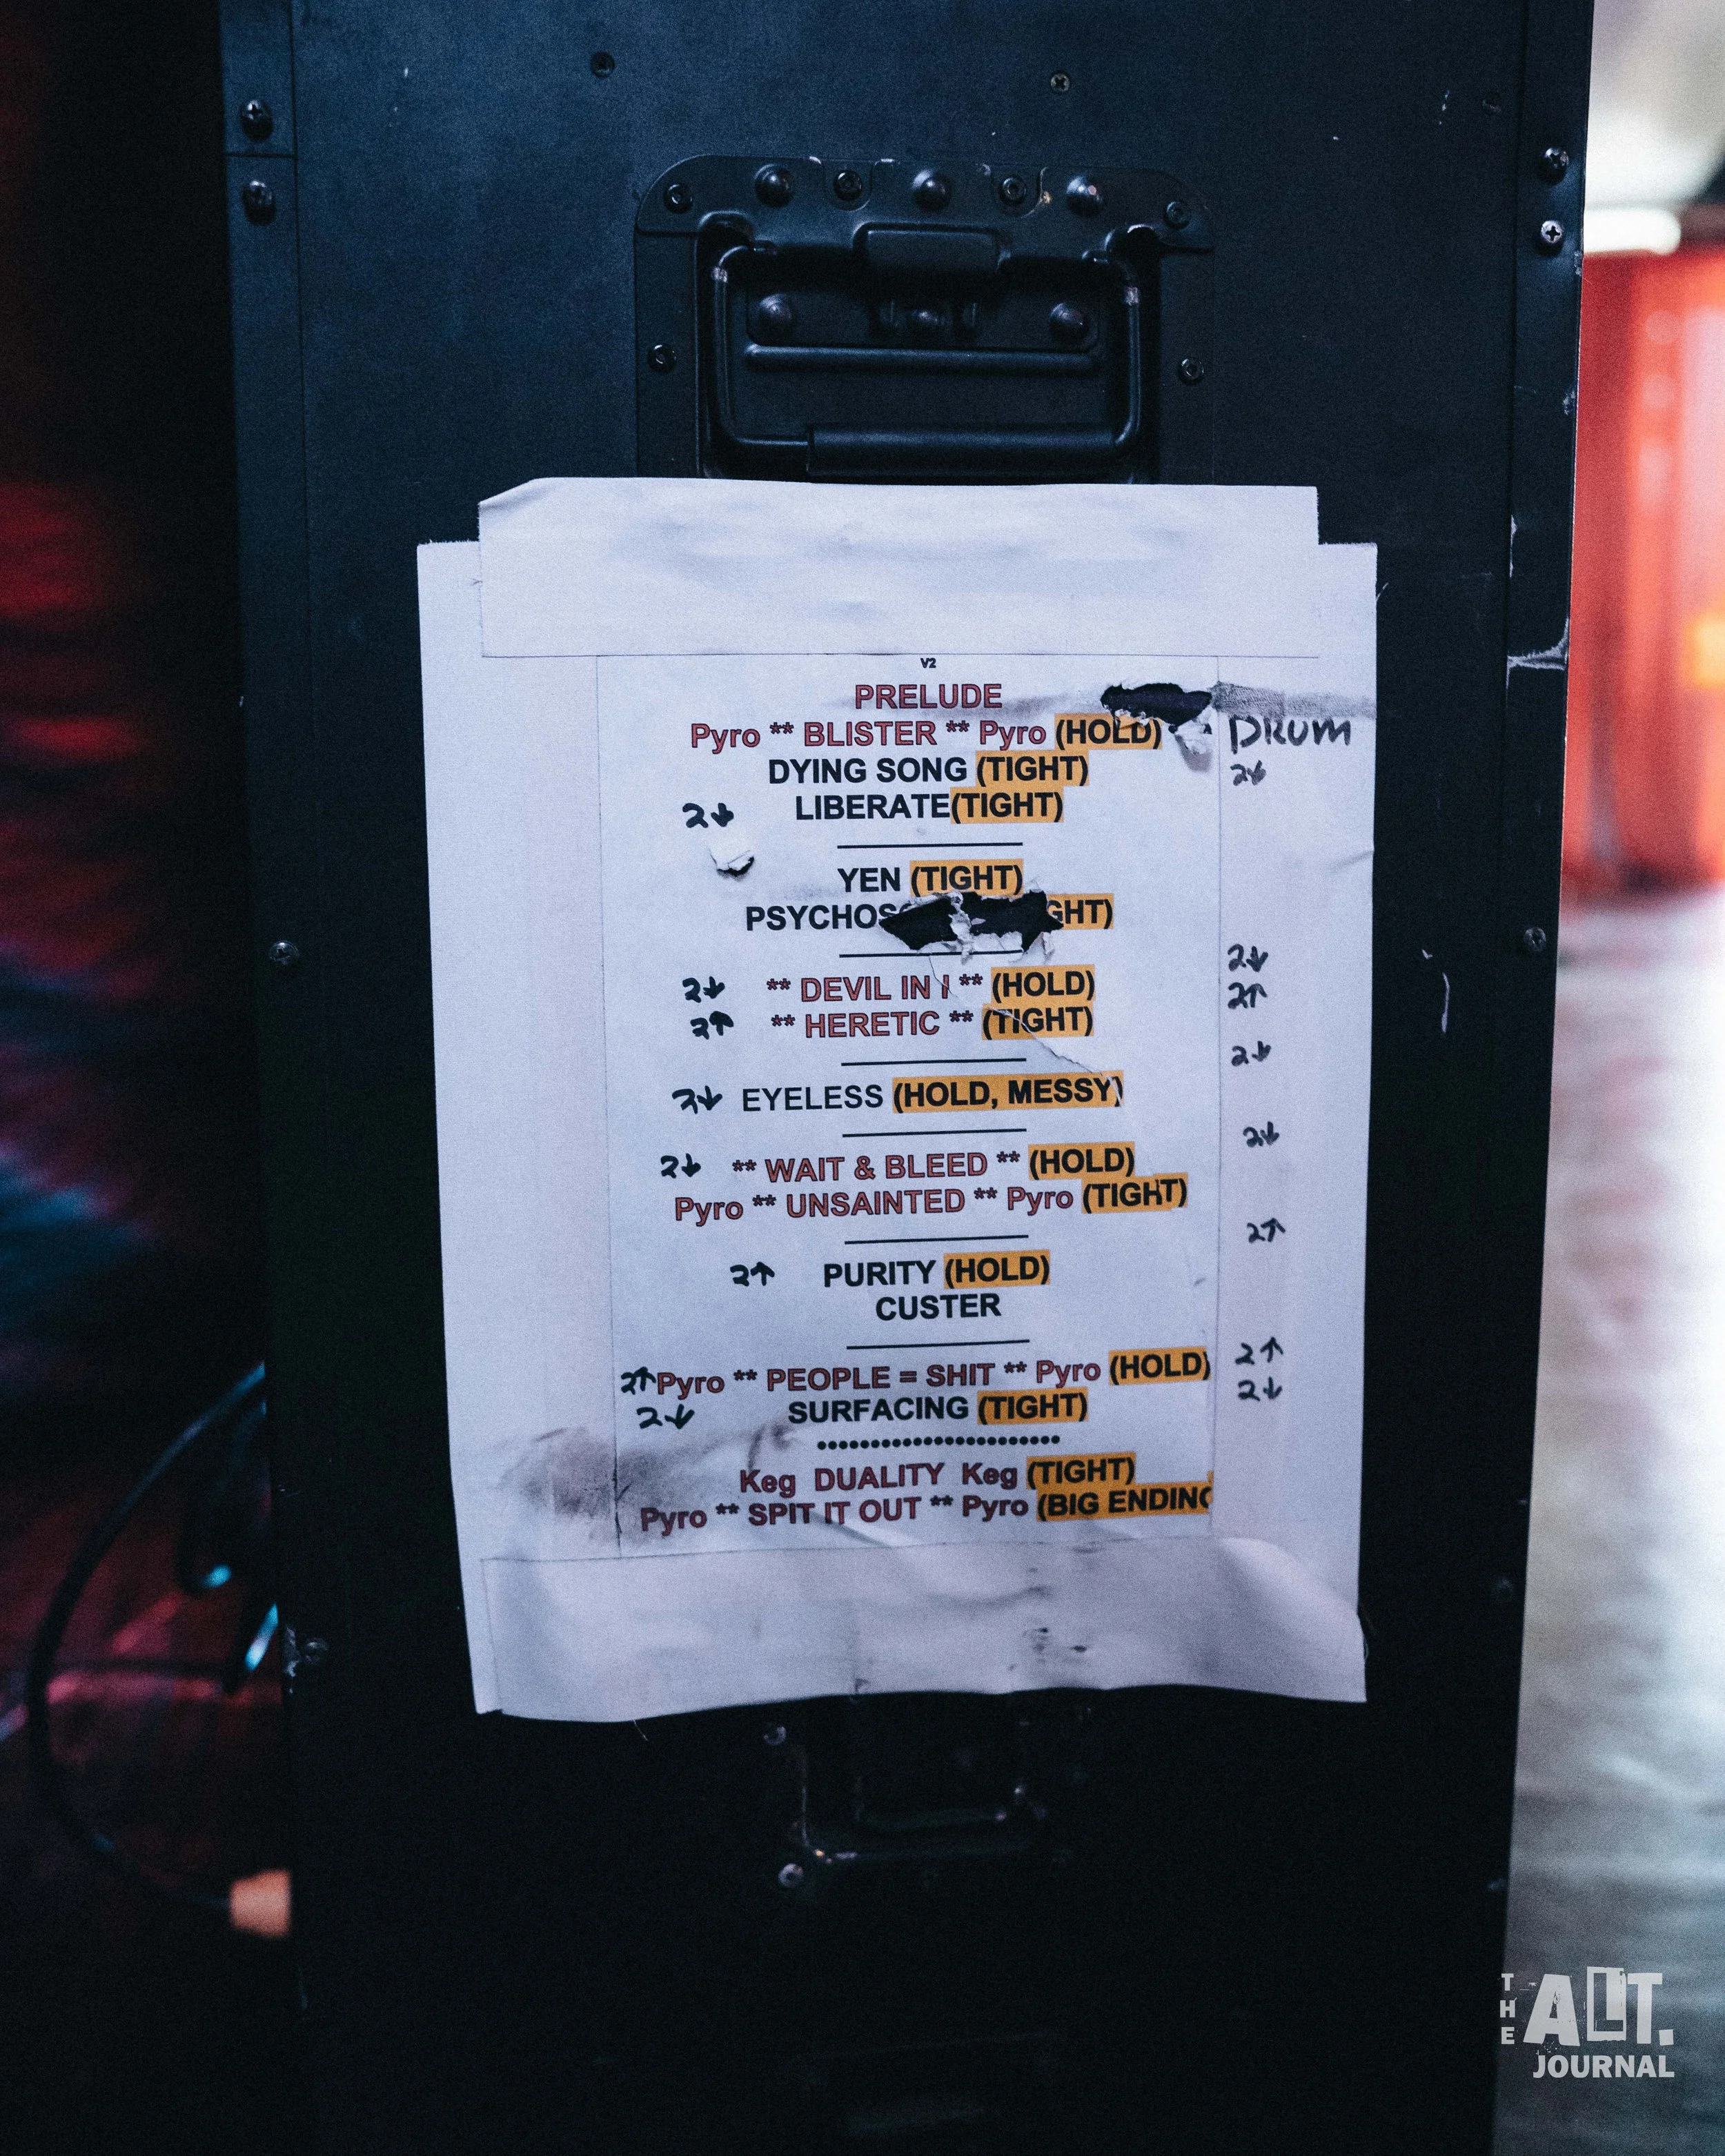 V2
PRELUDE
Pyro ** BLISTER ** Pyro (HOLD) DRUM
DYING SONG (TIGHT) 2↓
2↓ LIBERATE(TIGHT)
YEN (TIGHT)
2↓
2↓ ** DEVIL IN I ** (HOLD) 2↑
2↑ ** HERETIC ** (TIGHT)
2↓
2↓ EYELESS (HOLD, MESSY)
2↓
2↓ ** WAIT & BLEED ** (HOLD)
Pyro ** UNSAINTED ** Pyro (TIGHT)
2↑
2↑ PURITY (HOLD)
CUSTER
2↑ Pyro ** PEOPLE = SHIT ** Pyro (HOLD) 2↑
2↓ SURFACING (TIGHT) 2↓
Keg DUALITY Keg (TIGHT)
Pyro ** SPIT IT OUT ** Pyro (BIG ENDING
THE ALT.
JOURNAL